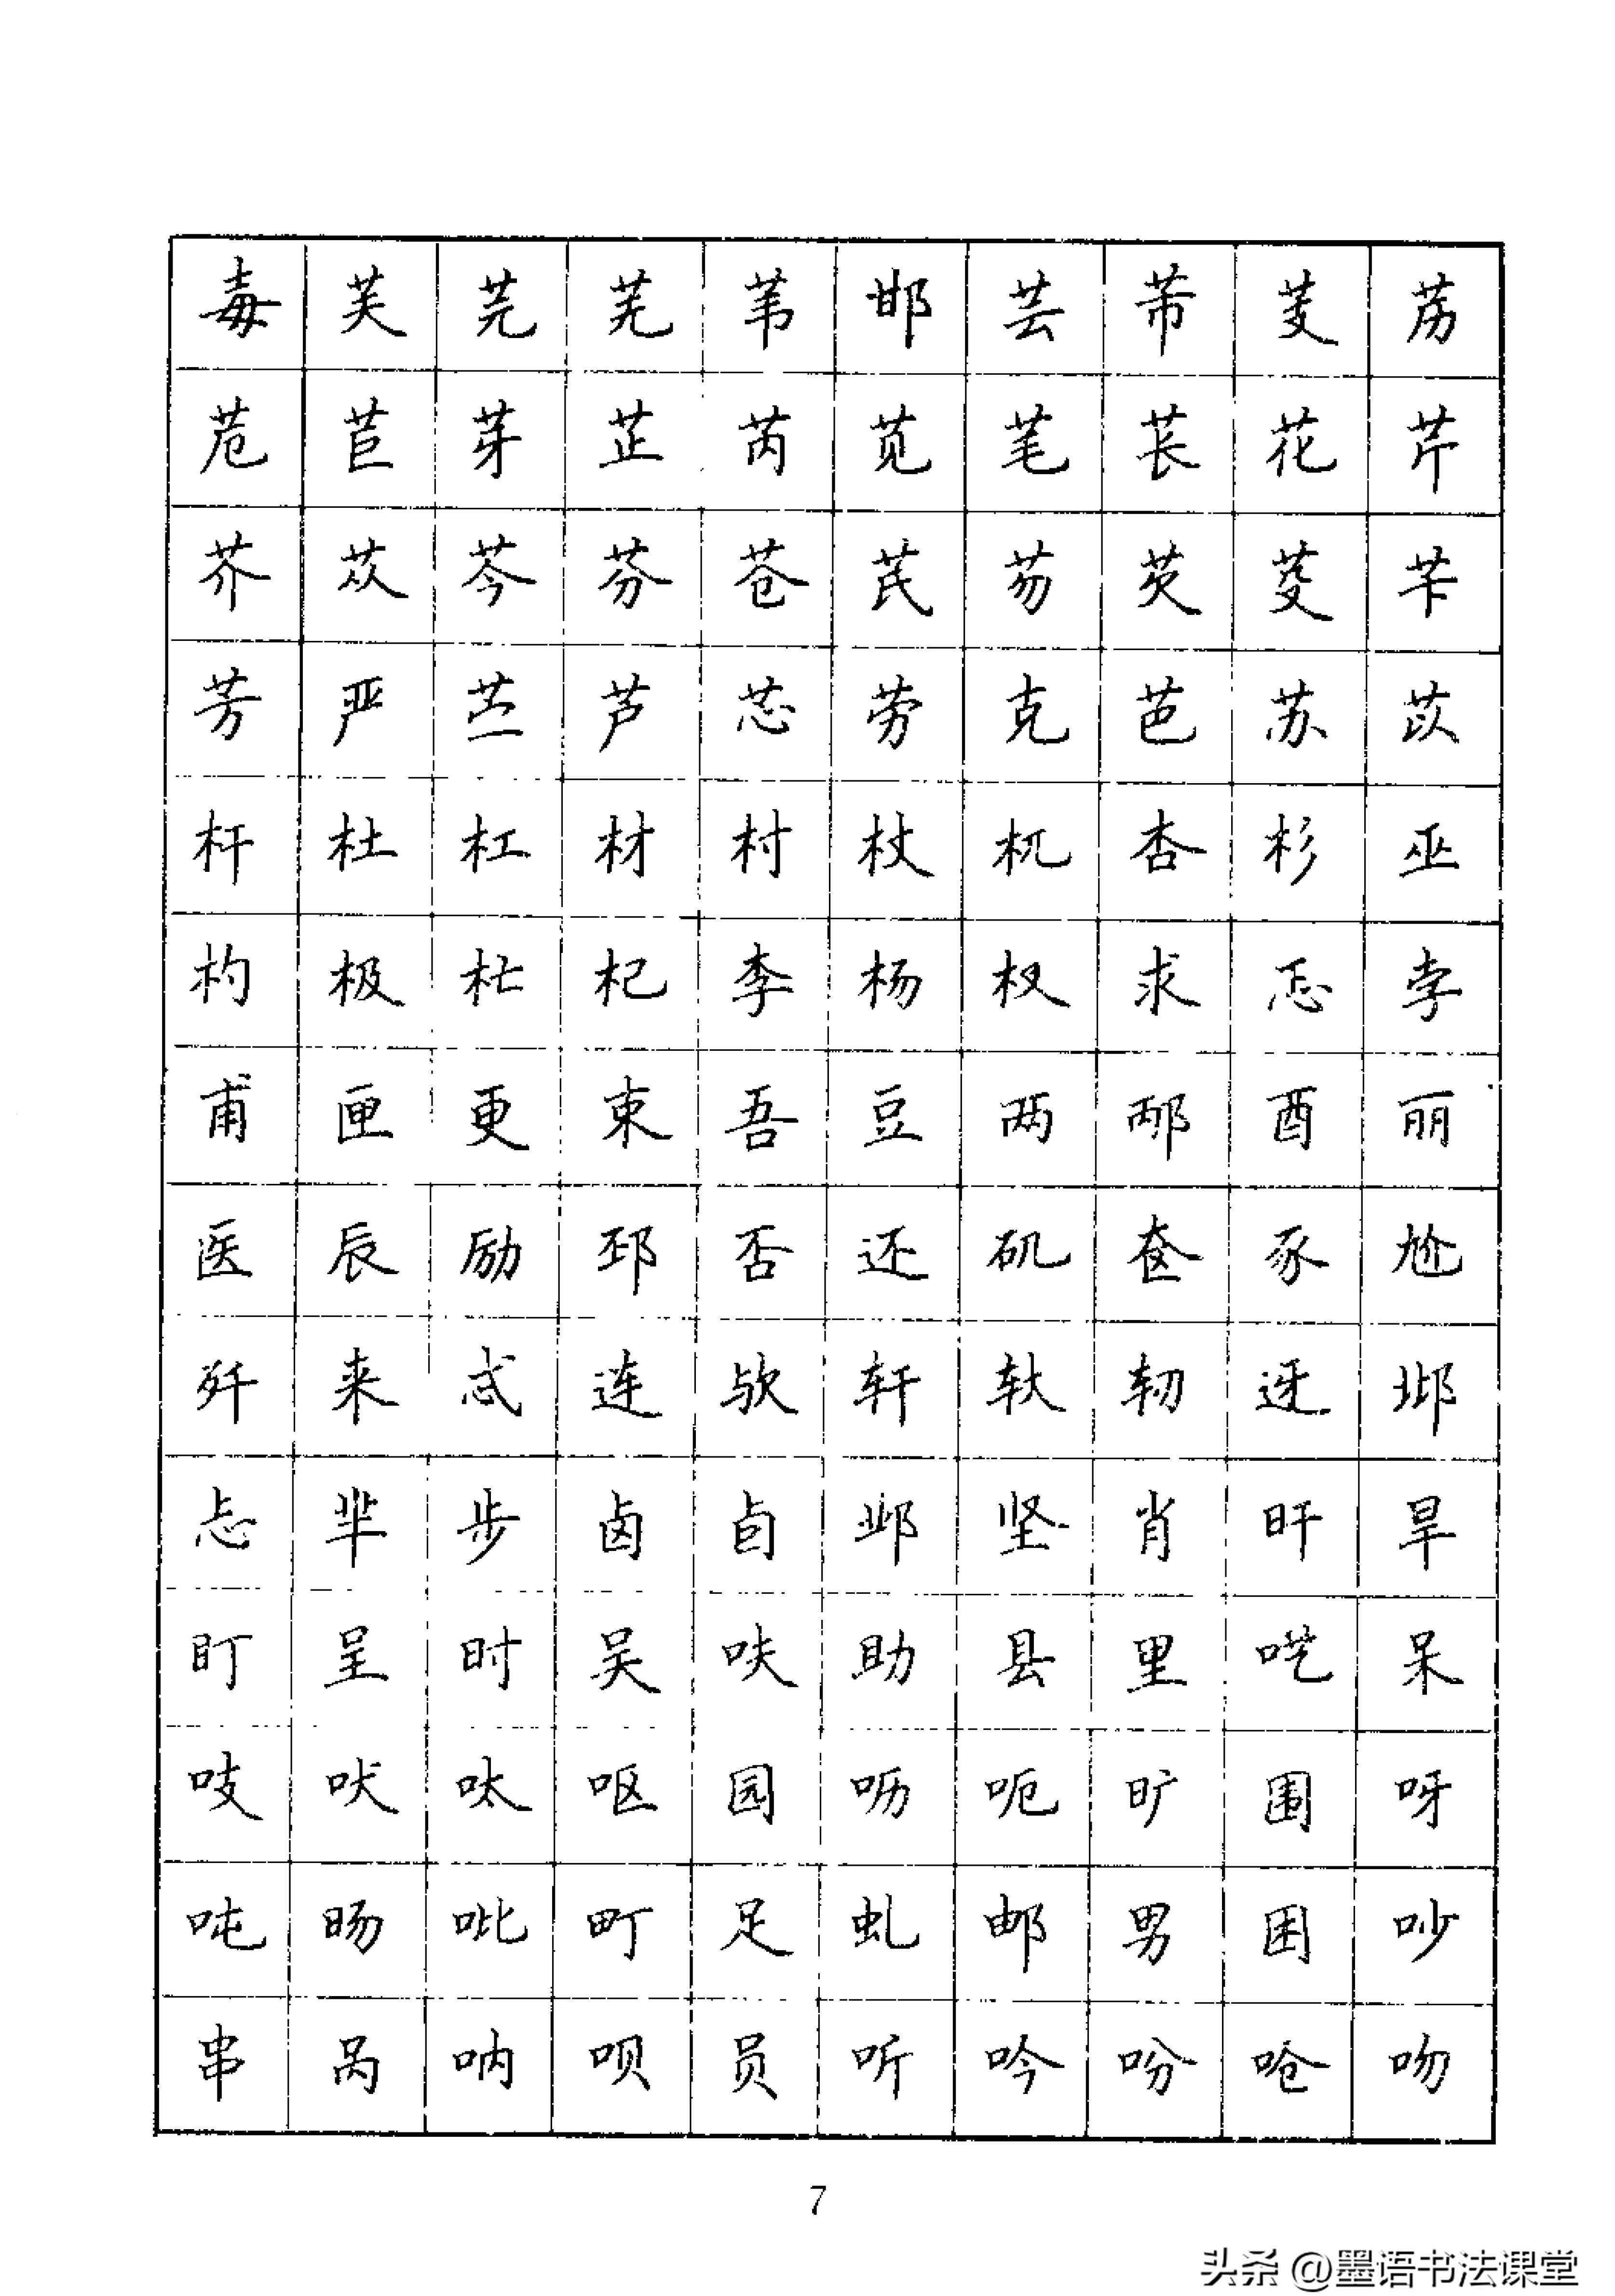 毐芙芫芜苇邯芸芾芰苈
苊苣芽芷芮苋芼苌花芹
芥苁芩芬苍芪芴芡芟苄
芳严苎芦芯劳克芭苏苡
杆杜杠材村杖杌杏杉巫
杓极杧杞李杨杈求忑孛
甫匣更束吾豆两邴酉丽
医辰励邳否还矶奁豕尬
歼来忒连欤轩轪轫迓邶
忐芈步卤卣邺坚肖旰旱
盯呈时吴呋助县里呓呆
吱吠呔呕园呖呃旷围呀
吨旸吡町足虬邮男困吵
串呙呐呗员听吟吩呛吻
7
头条 @墨语书法课堂